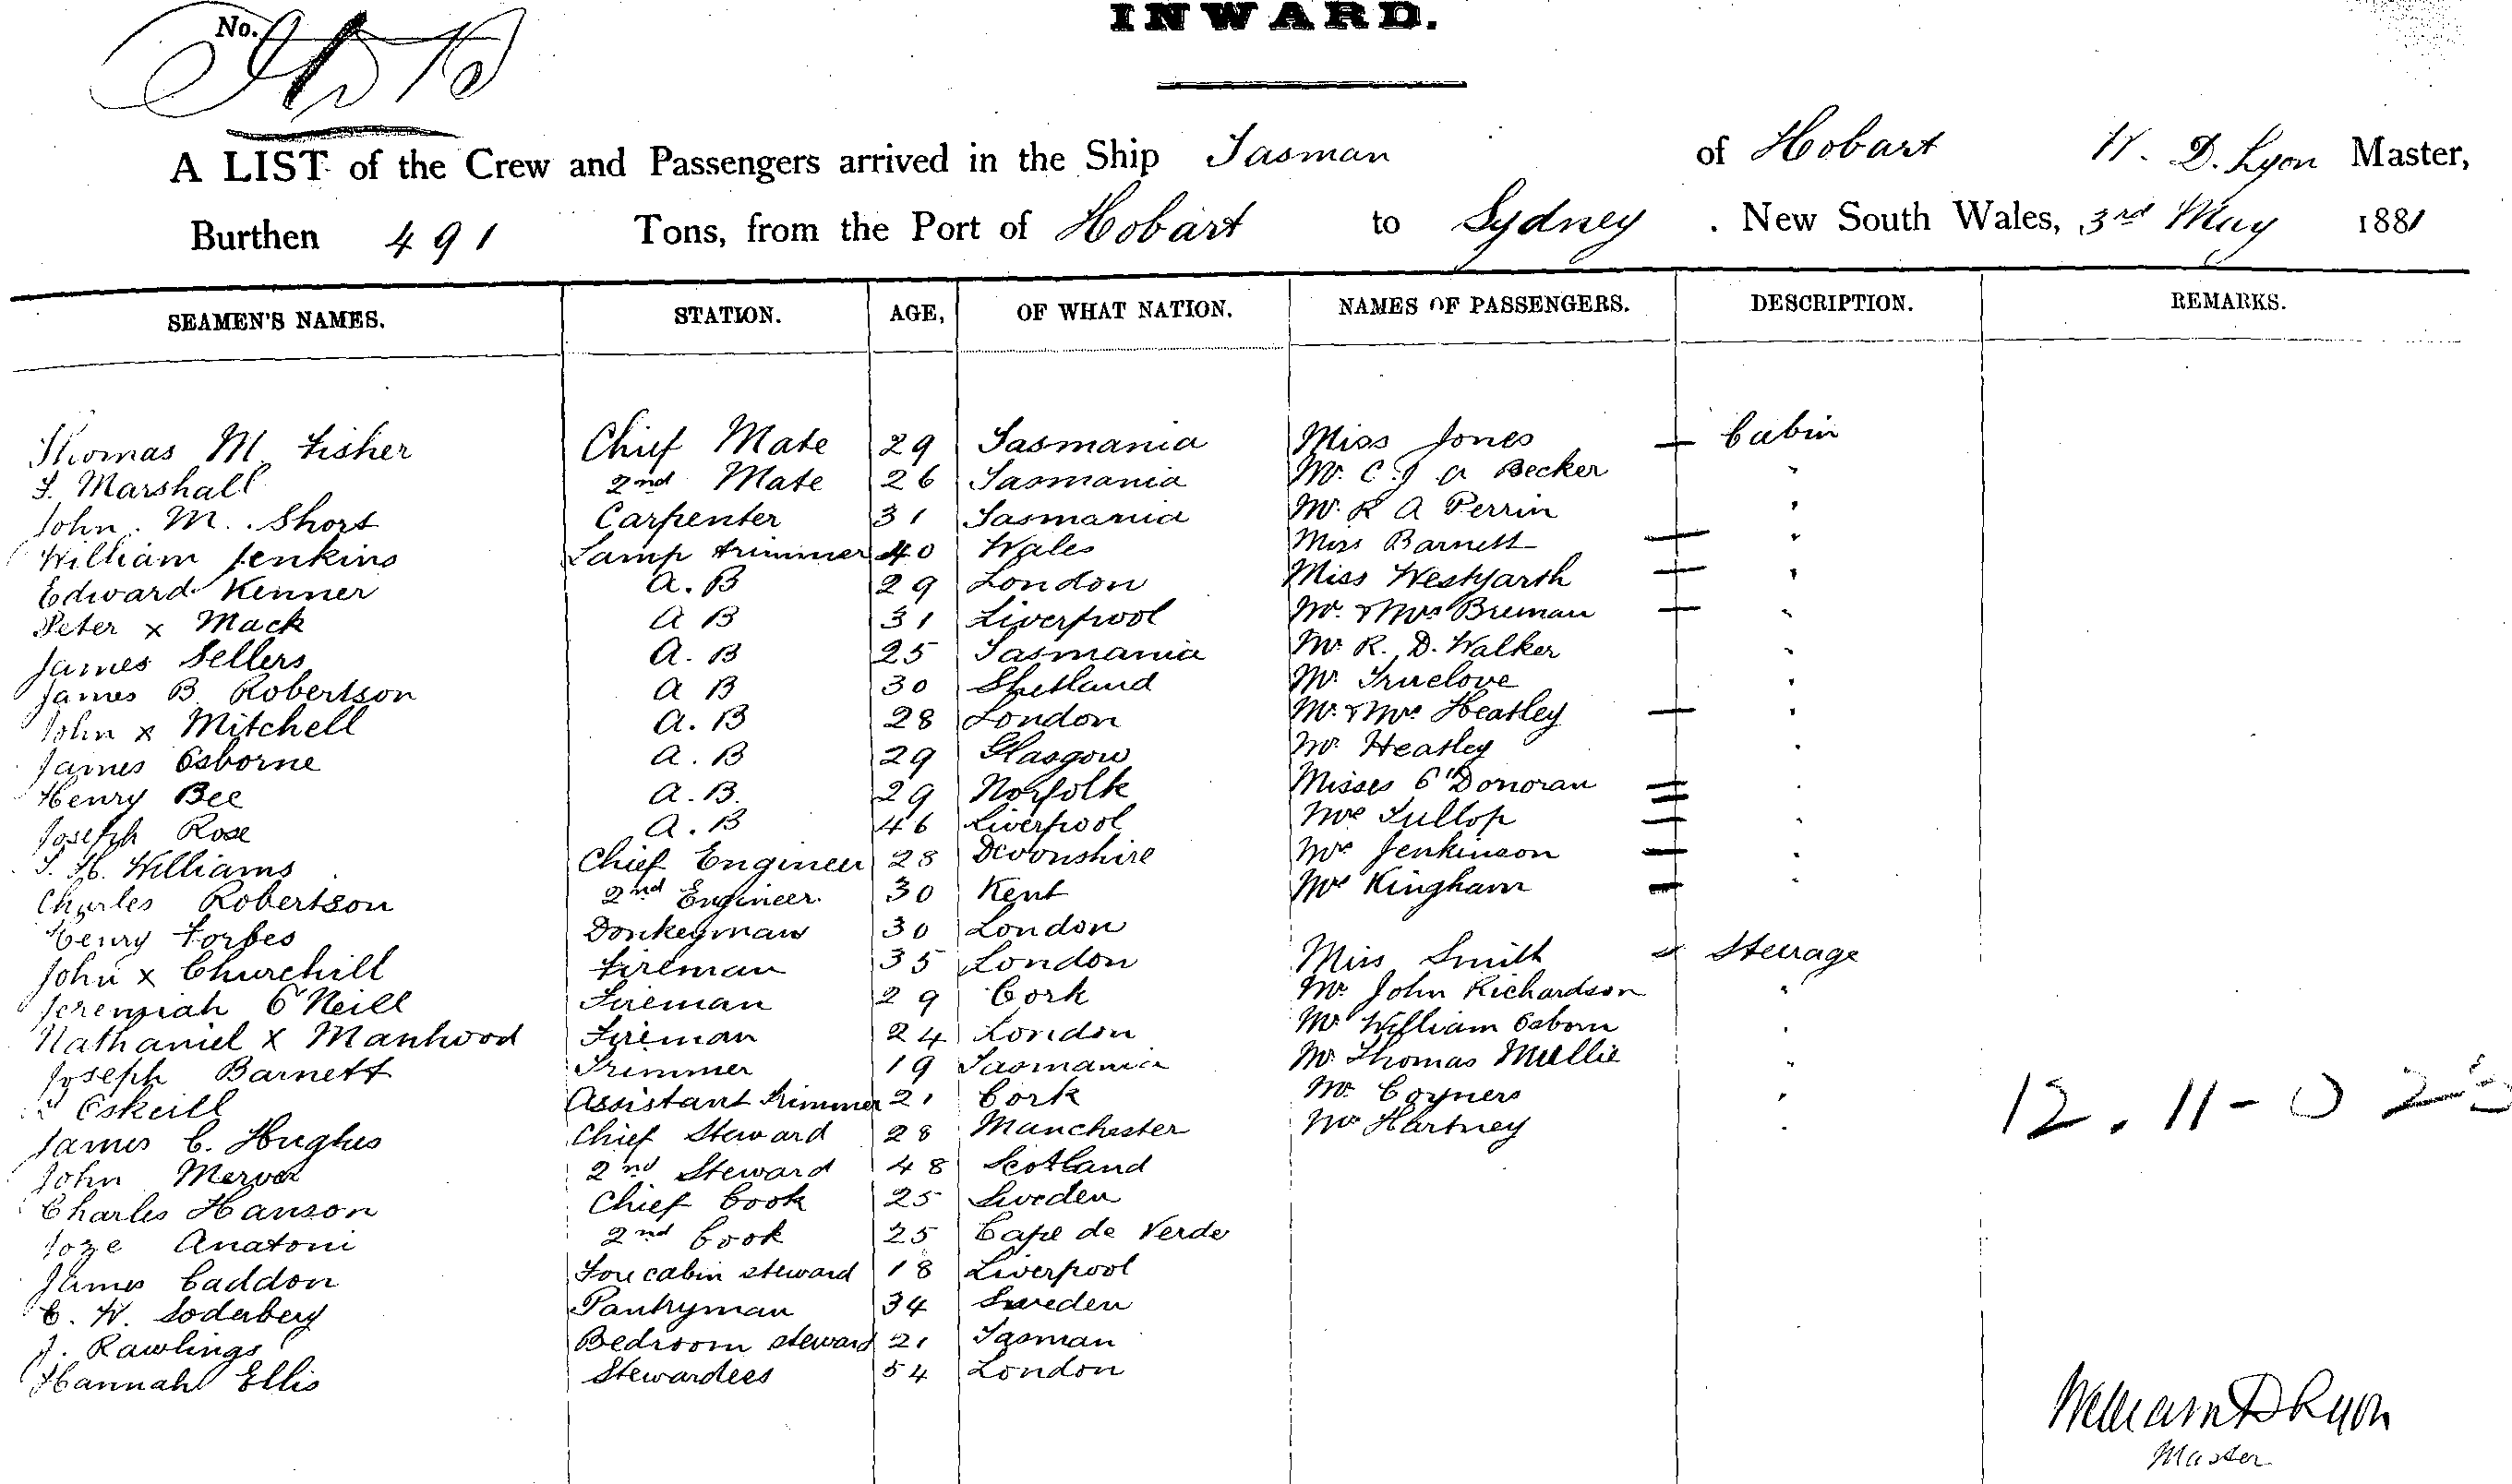 No.
INWARD.
A LIST of the Crew and Passengers arrived in the Ship Tasman of Hobart W. D. Lyon Master,
Burthen 491 Tons, from the Port of Hobart to Sydney. New South Wales, 3rd May 1881
SEAMEN'S NAMES. STATION. AGE, OF WHAT NATION. NAMES OF PASSENGERS. DESCRIPTION. REMARKS.
Thomas M. Fisher Chief Mate 29 Tasmania Miss Jones — Cabin
T. Marshall 2nd Mate 26 Tasmania Mr. C. J. A Becker "
John. M. Short Carpenter 31 Tasmania Mr. R A Perrin "
William Jenkins Lamp trimmer 40 Wales Miss Barnett — "
Edward Kenner A. B 29 London Miss Westgarth — "
Peter x Mack A B 31 Liverpool Mr. & Mrs Breman — "
James Sellers A. B 25 Tasmania Mr. R. D. Walker "
James B. Robertson A B 30 Shetland Mr. Truelove "
John x Mitchell A. B 28 London Mr. & Mrs Heatley — "
James Osborne A. B 29 Glasgow Mr Heatley "
Henry Bee A. B. 29 Norfolk Misses O'Donovan "
Joseph Rose A. B 46 Liverpool Mrs Tullop — "
T. H. Williams Chief Engineer 28 Devonshire Mrs Jenkinson — "
Charles Robertson 2nd Engineer. 30 Kent Mrs Kingham — "
Henry Forbes Donkeyman 30 London
John x Churchill Fireman 35 London Miss Smith Steerage
Jeremiah O'Neill Fireman 29 Cork Mr John Richardson "
Nathaniel x Manhood Fireman 24 London Mr William Osborn "
Joseph Barnett Trimmer 19 Tasmania Mr. Thomas Mullie "
Eskeill Assistant trimmer 21 Cork Mr. Coyners "
James C. Hughes Chief Steward 28 Manchester Mr Hartney "
12.11-0
John 2nd Steward 48 Scotland
Charles Hanson Chief Cook 25 Sweden
Joze Anatoni 2nd Cook 25 Cape de Verde
James Caddon Fore cabin steward 18 Liverpool
C. W. Soderberg Pantryman 34 Sweden
J. Rawlings Bedroom steward 21 Tasman
Hannah Ellis Stewardess 54 London
William D Lyon
Master